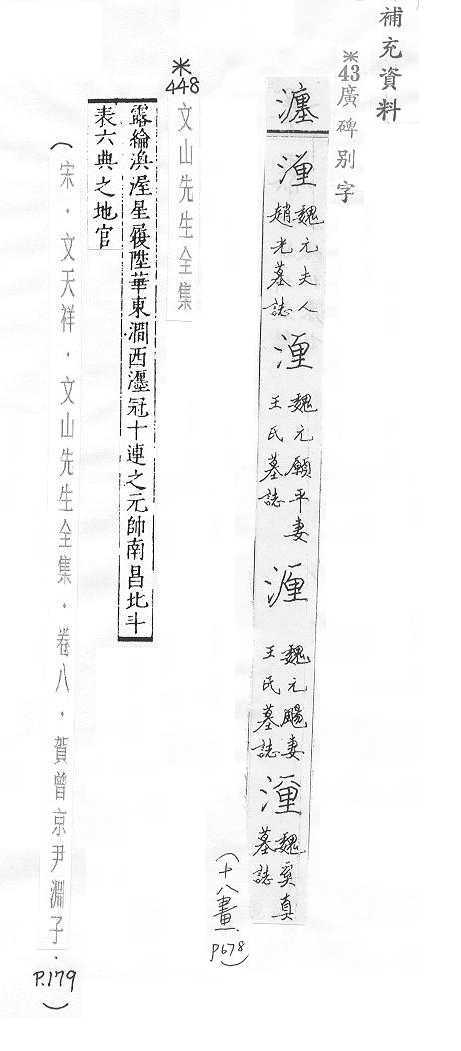 補充資料
*43廣碑別字
瀍
魏元夫人
趙光墓誌
魏元願平妻
王氏墓誌
魏元颺妻
王氏墓誌
魏奚真
墓誌
(十八畫 P678)
*448
文山先生全集
露綸渙渥星履陞華東澗西冠十連之元帥南昌北斗
表六典之地官
(宋．文天祥．文山先生全集．卷八．賀曾京尹淵子．P.179)